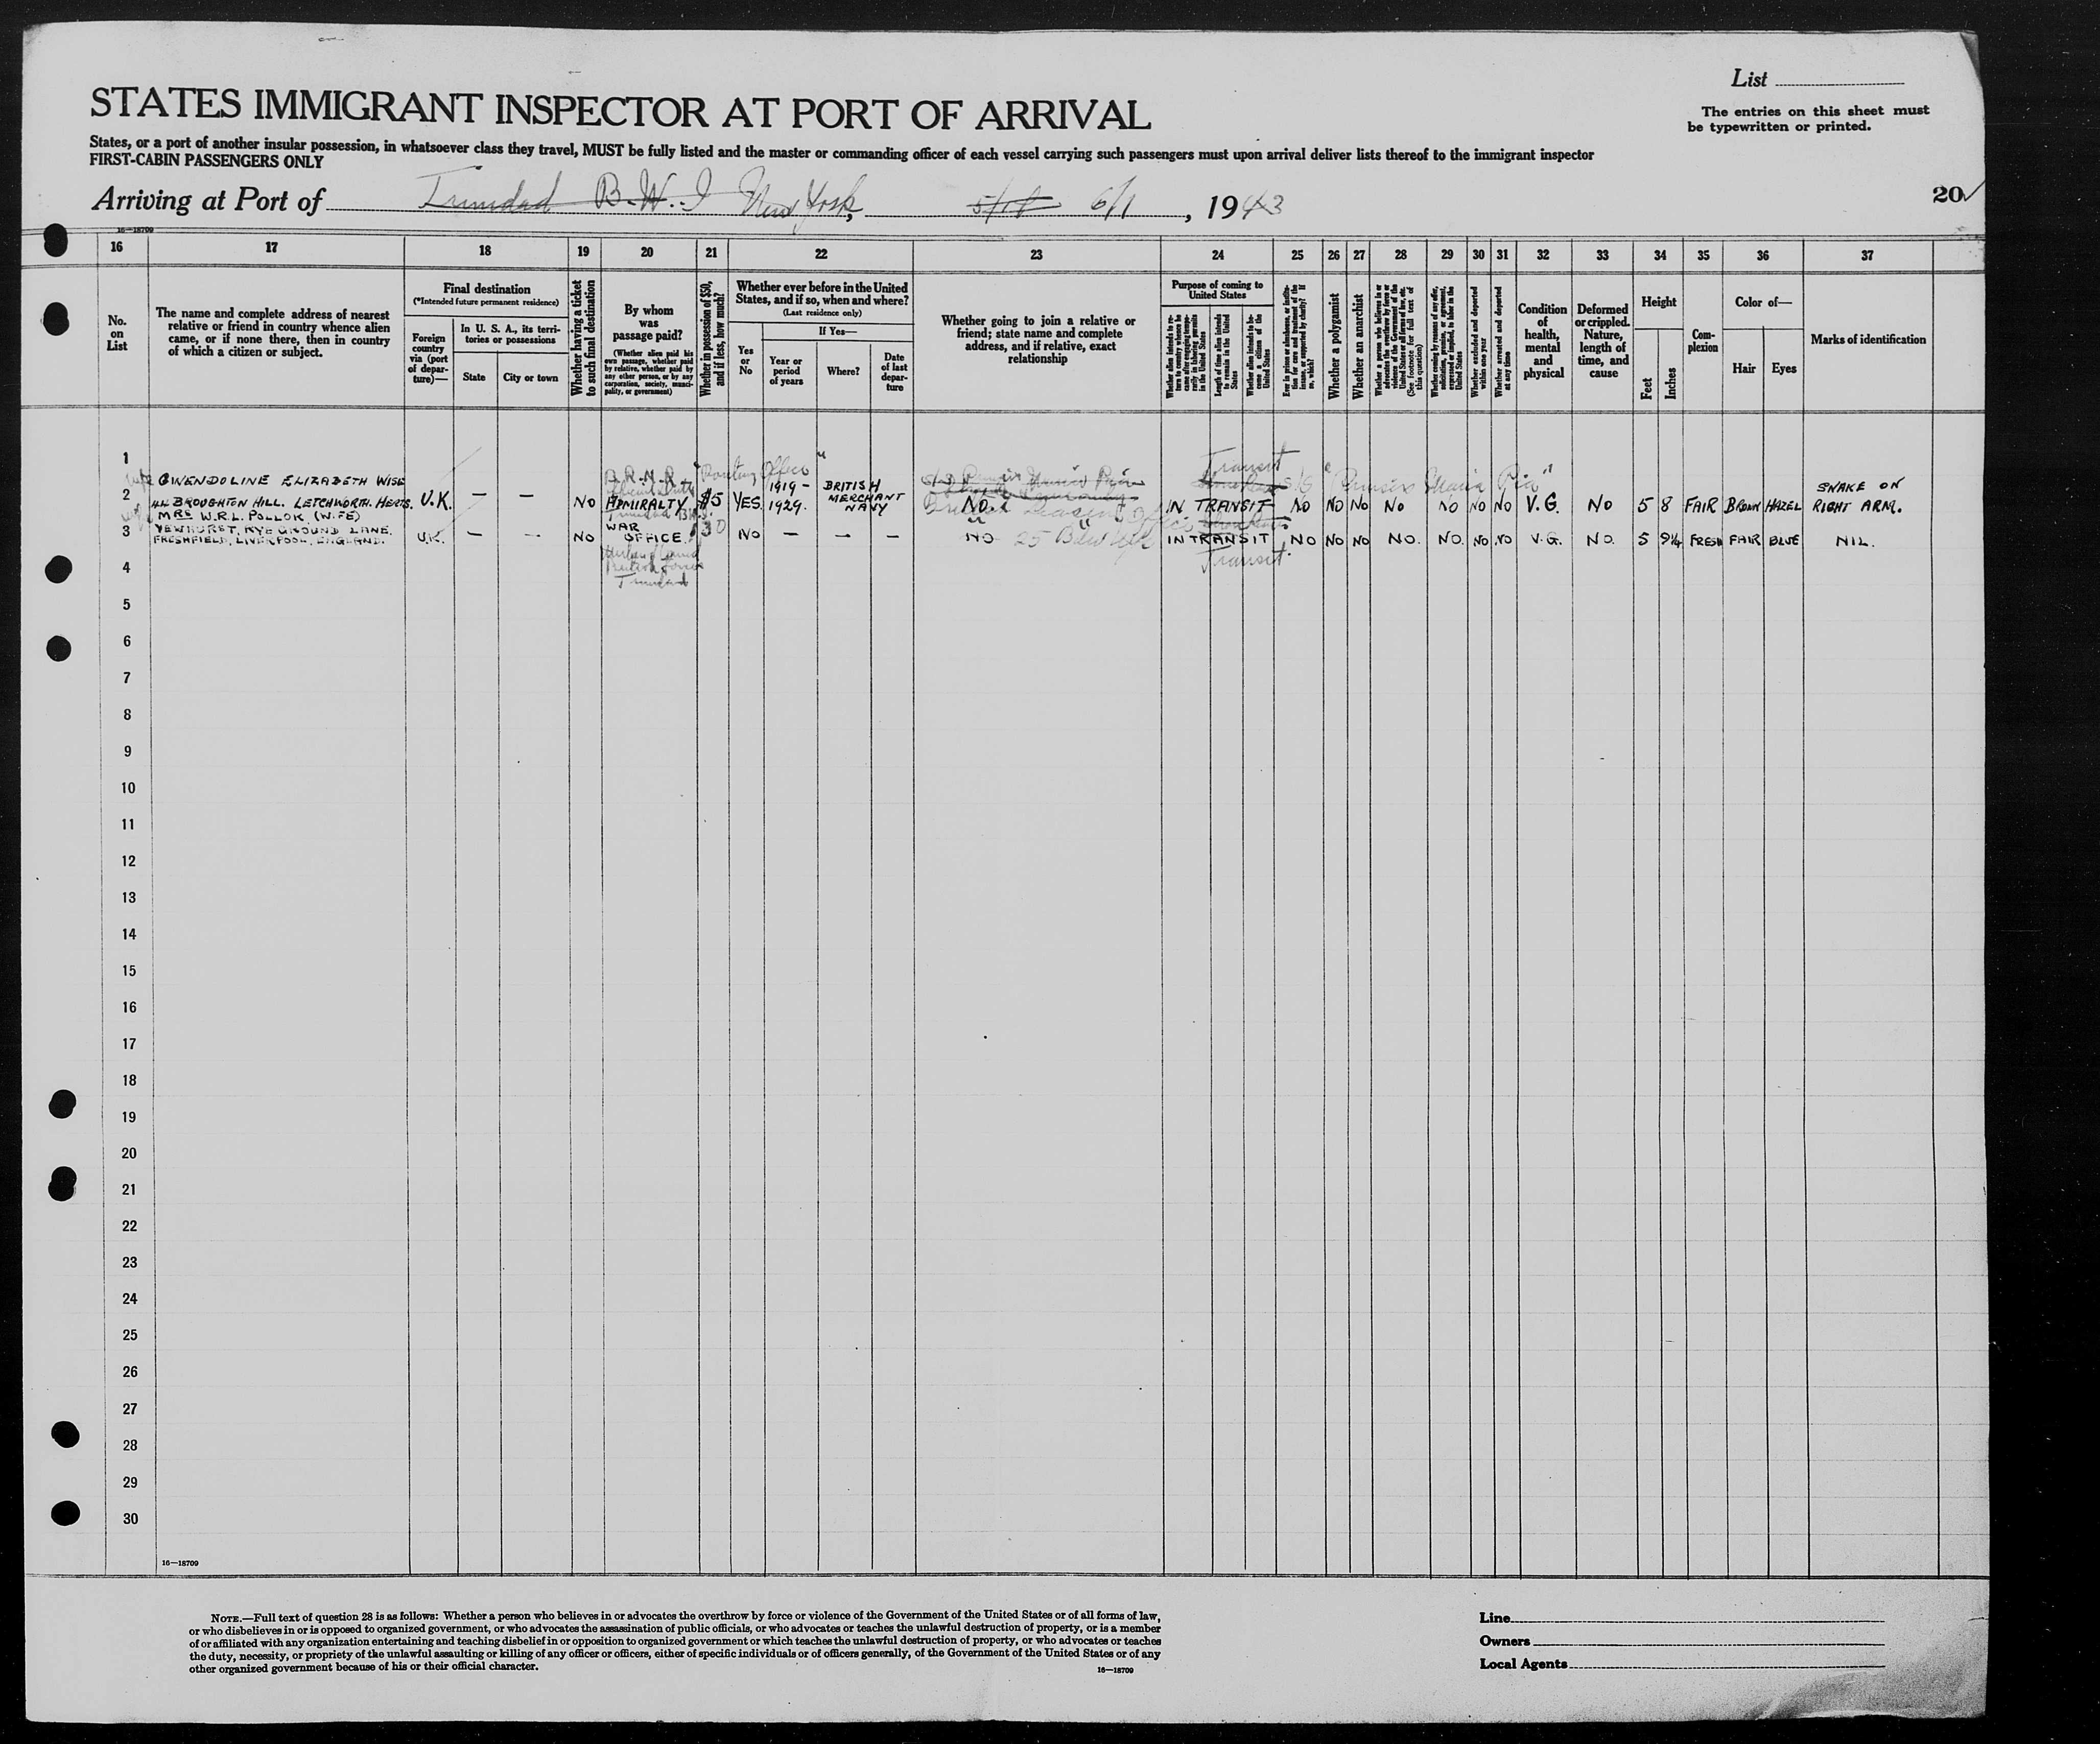 List
STATES IMMIGRANT INSPECTOR AT PORT OF ARRIVAL
The entries on this sheet must
be typewritten or printed.
States, or a port of another insular possession, in whatsoever class they travel, MUST be fully listed and the master or commanding officer of each vessel carrying such passengers must upon arrival deliver lists thereof to the immigrant inspector
FIRST-CABIN PASSENGERS ONLY
Arriving at Port of Trinidad B.W.I New York, 6/1, 1943
20
16—18709
16 17 18 19 20 21 22 23 24 25 26 27 28 29 30 31 32 33 34 35 36 37
No. on List
The name and complete address of nearest relative or friend in country whence alien came, or if none there, then in country of which a citizen or subject.
Final destination
(*Intended future permanent residence)
Foreign country via (port of departure)—
In U. S. A., its territories or possessions
State
City or town
Whether having a ticket to such final destination
By whom was passage paid?
(Whether alien paid his own passage, whether paid by relative, whether paid by any other person, or by any corporation, society, municipality, or government)
Whether in possession of $50, and if less, how much?
Whether ever before in the United States, and if so, when and where?
(Last residence only)
Yes or No
If Yes—
Year or period of years
Where?
Date of last departure
Whether going to join a relative or friend; state name and complete address, and if relative, exact relationship
Purpose of coming to United States
Length of time alien intends to remain in the United States
Whether alien intends to become a citizen of the United States
Whether a polygamist
Whether an anarchist
(See footnote for full text of this question)
Whether excluded and deported within one year
Whether arrested and deported at any time
Condition of health, mental and physical
Deformed or crippled. Nature, length of time, and cause
Height
Feet
Inches
Complexion
Color of—
Hair
Eyes
Marks of identification
1
Transit
GWENDOLINE ELIZABETH WISE
B.R.N.R. "Routing Officer"
2 BROUGHTON HILL. LETCHWORTH. HERTS. U.K. — — NO ADMIRALTY $5 YES. 1919 - 1929. BRITISH MERCHANT NAVY NO. IN TRANSIT NO NO NO NO NO NO NO V.G. NO 5 8 FAIR BROWN HAZEL SNAKE ON RIGHT ARM.
MRS W.R.L. POLLOK (WIFE)
3 YEWHURST, RYEGROUND LANE, FRESHFIELD, LIVERPOOL, ENGLAND. U.K. — — NO WAR OFFICE. 30 NO — — — NO IN TRANSIT NO NO NO NO. NO. NO NO V.G. NO. 5 9¼ FRESH FAIR BLUE NIL.
25 Bdwy
Transit
Trinidad
4
5
6
7
8
9
10
11
12
13
14
15
16
17
18
19
20
21
22
23
24
25
26
27
28
29
30
16—18709
NOTE.—Full text of question 28 is as follows: Whether a person who believes in or advocates the overthrow by force or violence of the Government of the United States or of all forms of law,
or who disbelieves in or is opposed to organized government, or who advocates the assassination of public officials, or who advocates or teaches the unlawful destruction of property, or is a member
of or affiliated with any organization entertaining and teaching disbelief in or opposition to organized government or which teaches the unlawful destruction of property, or who advocates or teaches
the duty, necessity, or propriety of the unlawful assaulting or killing of any officer or officers, either of specific individuals or of officers generally, of the Government of the United States or of any
other organized government because of his or their official character.
16—18709
Line
Owners
Local Agents